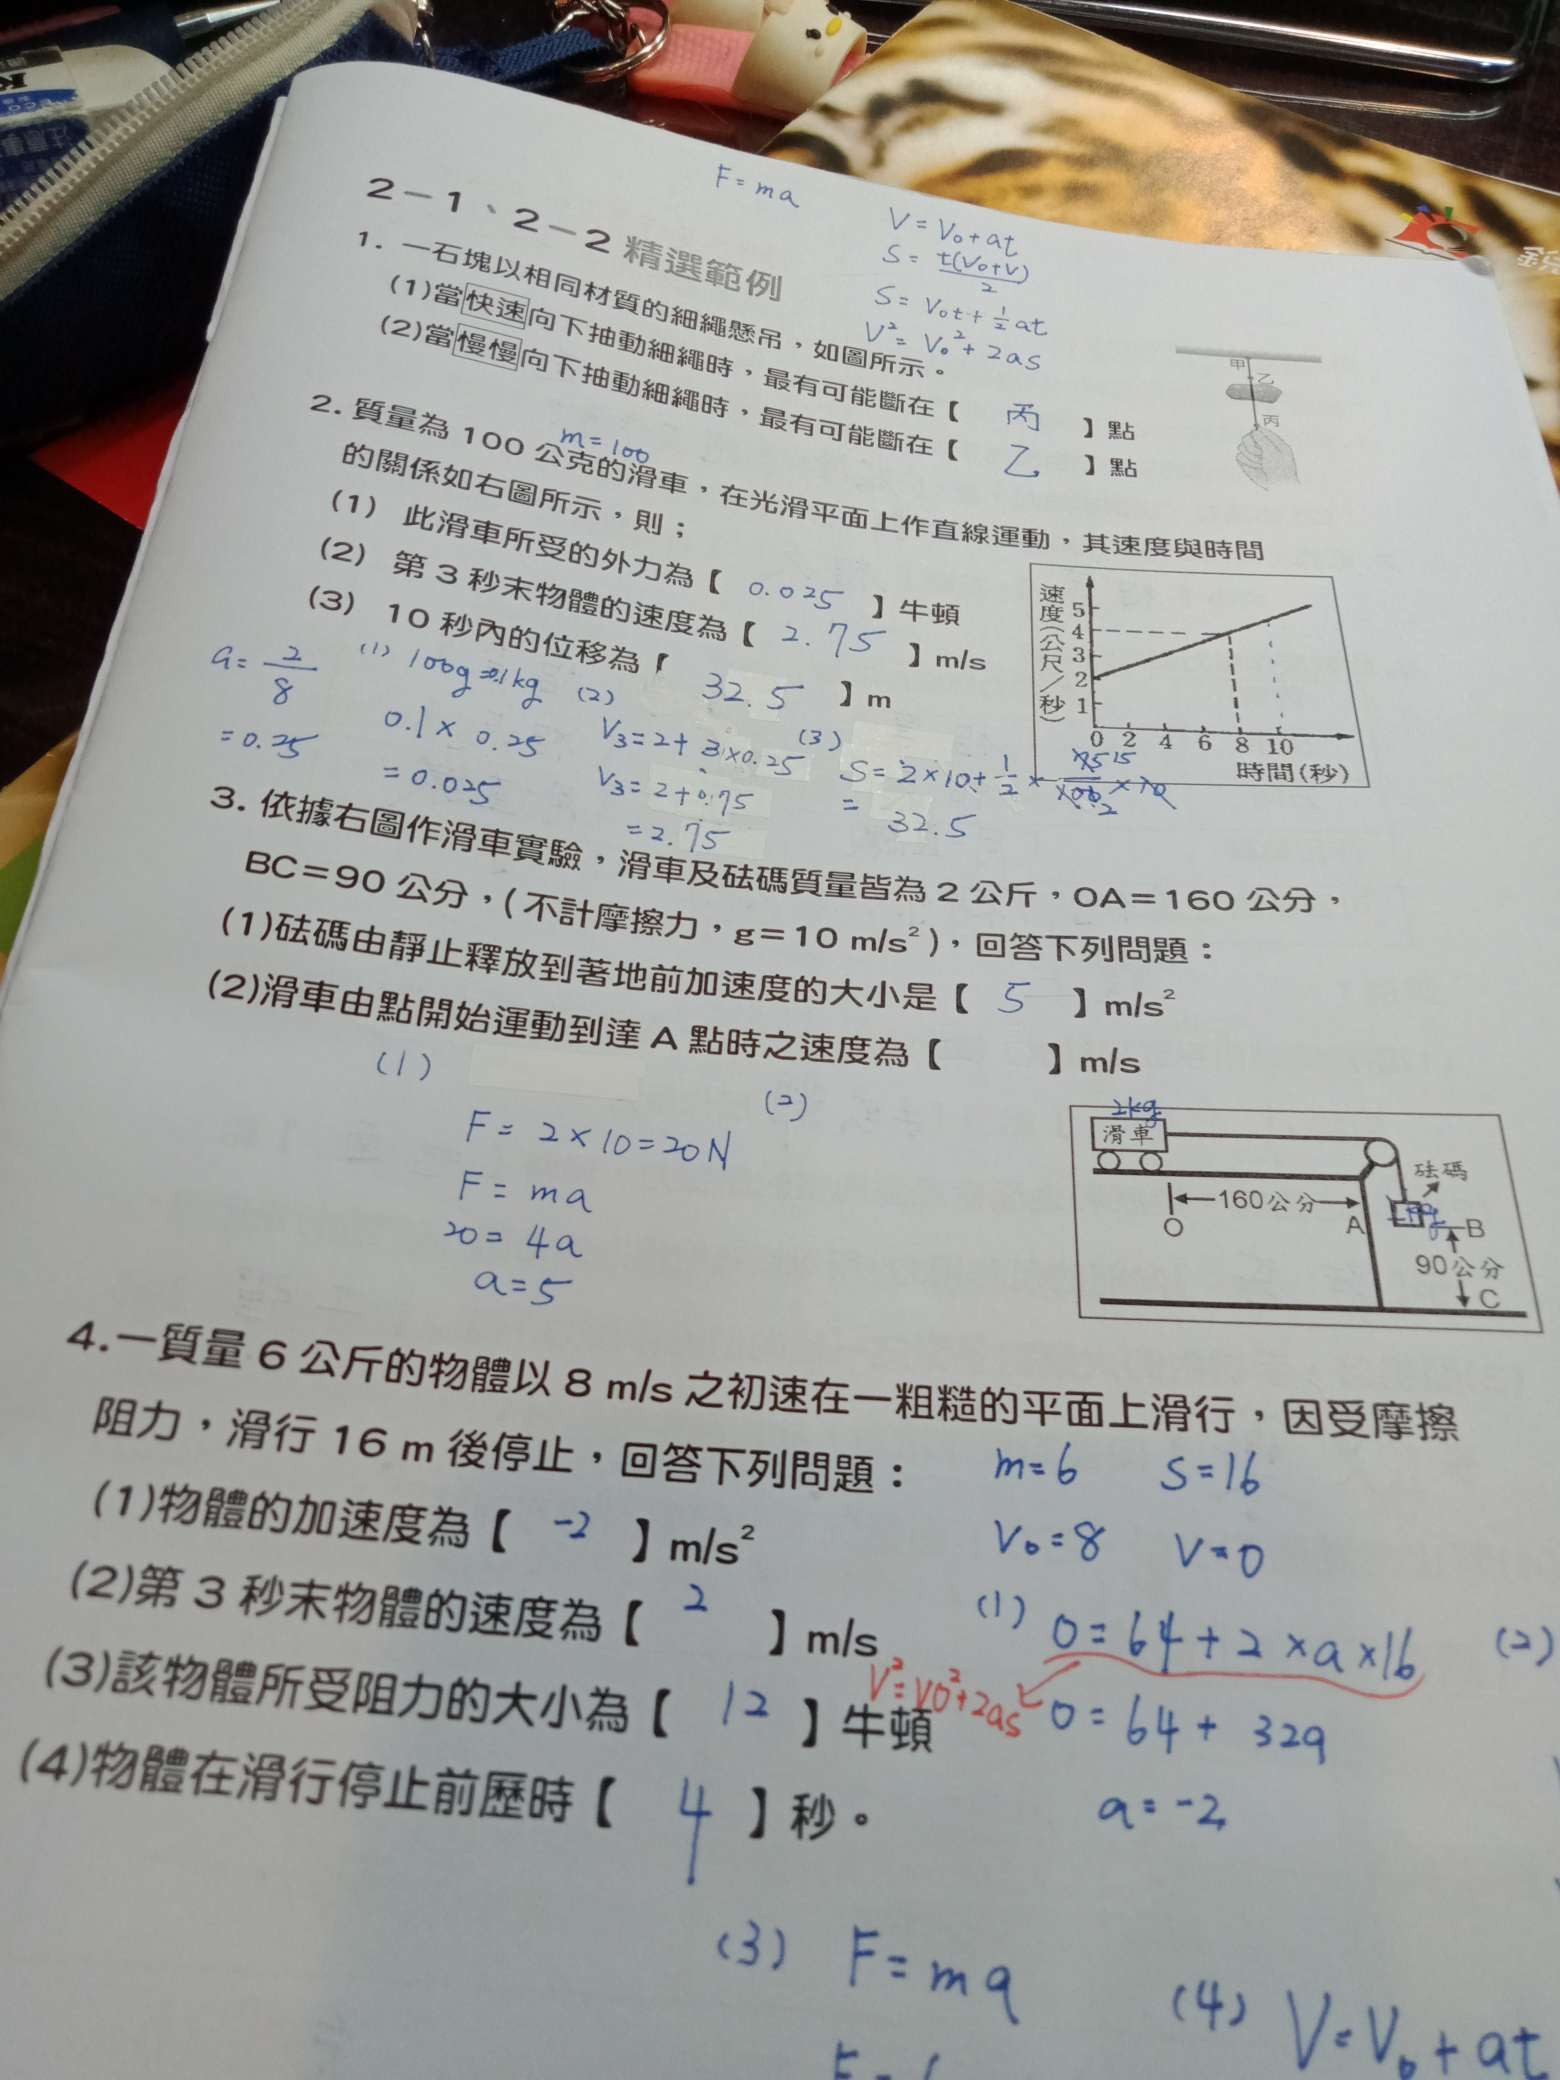 F = ma
V = V₀ + at
S = t(V₀+V)/2
S = V₀t + ½ at
V² = V₀² + 2as
2－1、2－2 精選範例
1. 一石塊以相同材質的細繩懸吊，如圖所示。
(1)當快速向下抽動細繩時，最有可能斷在【 丙 】點
(2)當慢慢向下抽動細繩時，最有可能斷在【 乙 】點
甲
乙
丙
m=100
2. 質量為 100 公克的滑車，在光滑平面上作直線運動，其速度與時間
的關係如右圖所示，則；
(1) 此滑車所受的外力為【 0.025 】牛頓
(2) 第 3 秒末物體的速度為【 2.75 】m/s
(3) 10 秒內的位移為【 32.5 】m
速度(公尺/秒)
5
4
3
2
1
0 2 4 6 8 10
時間(秒)
a= 2/8
=0.25
(1) 100g=0.1kg
0.1× 0.25
=0.025
(2)
V₃=2+3×0.25
V₃=2+0.75
=2.75
(3)
S=2×10+½×
= 32.5
3. 依據右圖作滑車實驗，滑車及砝碼質量皆為 2 公斤，OA＝160 公分，
BC＝90 公分，(不計摩擦力，g＝10 m/s²)，回答下列問題：
(1)砝碼由靜止釋放到著地前加速度的大小是【 5 】m/s²
(2)滑車由點開始運動到達 A 點時之速度為【 】m/s
(1)
F = 2×10=20N
F = ma
20= 4a
a=5
(2)
2kg
滑車
砝碼
160公分
O
A
B
90公分
C
4.一質量 6 公斤的物體以 8 m/s 之初速在一粗糙的平面上滑行，因受摩擦
阻力，滑行 16 m 後停止，回答下列問題：
m=6 S=16
V₀=8 V=0
(1)物體的加速度為【 -2 】m/s²
(2)第 3 秒末物體的速度為【 2 】m/s
(3)該物體所受阻力的大小為【 12 】牛頓
(4)物體在滑行停止前歷時【 4 】秒。
(1) 0=64+2×a×16
V²=V0²+2as
0=64+ 32a
a=-2
(2)
(3) F=ma
(4) V=V₀+at